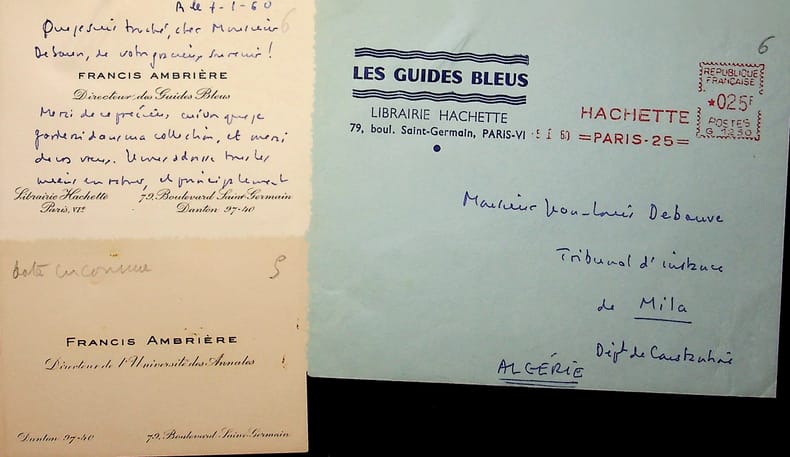 A le 7-1-60
Que je suis touché, cher Monsieur
Debauve, de votre gracieux souvenir !
FRANCIS AMBRIÈRE
Directeur des Guides Bleus
Merci de ce précieux que je
garderai dans ma collection, et merci
de vos vœux. Je vous adresse tous les
miens en retour, et principalement
Librairie Hachette
Paris, VIe
79, Boulevard Saint-Germain
Danton 97-40
date inconnue
5
FRANCIS AMBRIÈRE
Directeur de l'Université des Annales
Danton 97-40
79, Boulevard Saint-Germain
6
6
LES GUIDES BLEUS
LIBRAIRIE HACHETTE
79, boul. Saint-Germain, PARIS-VI
HACHETTE
-9 I 60 =PARIS-25=
REPUBLIQUE
FRANÇAISE
*025F
POSTES
G 1230
Monsieur Jean-Louis Debauve
Tribunal d'instance
de Mila
Dépt de Constantine
ALGÉRIE